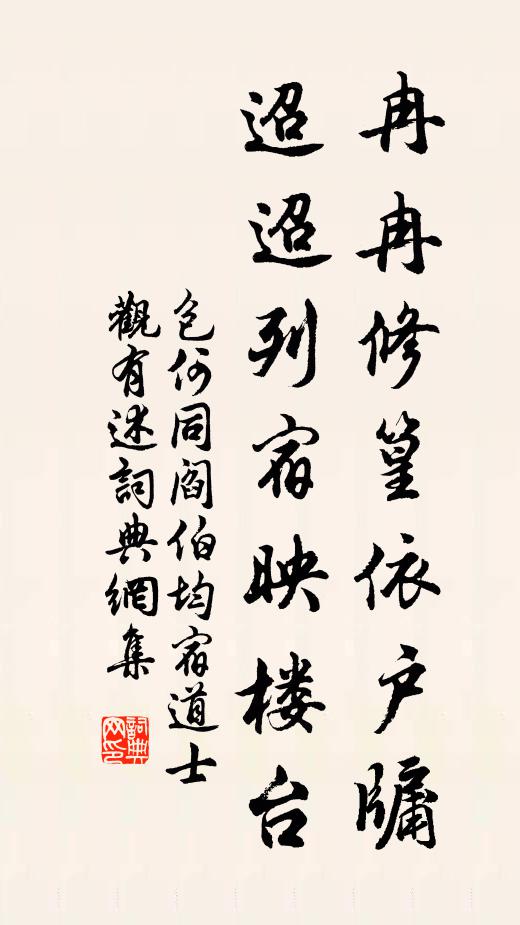 冉冉修篁依户牖
迢迢列宿映楼台
包何同阎伯均宿道士
觀有述詞典網集
詞典网印